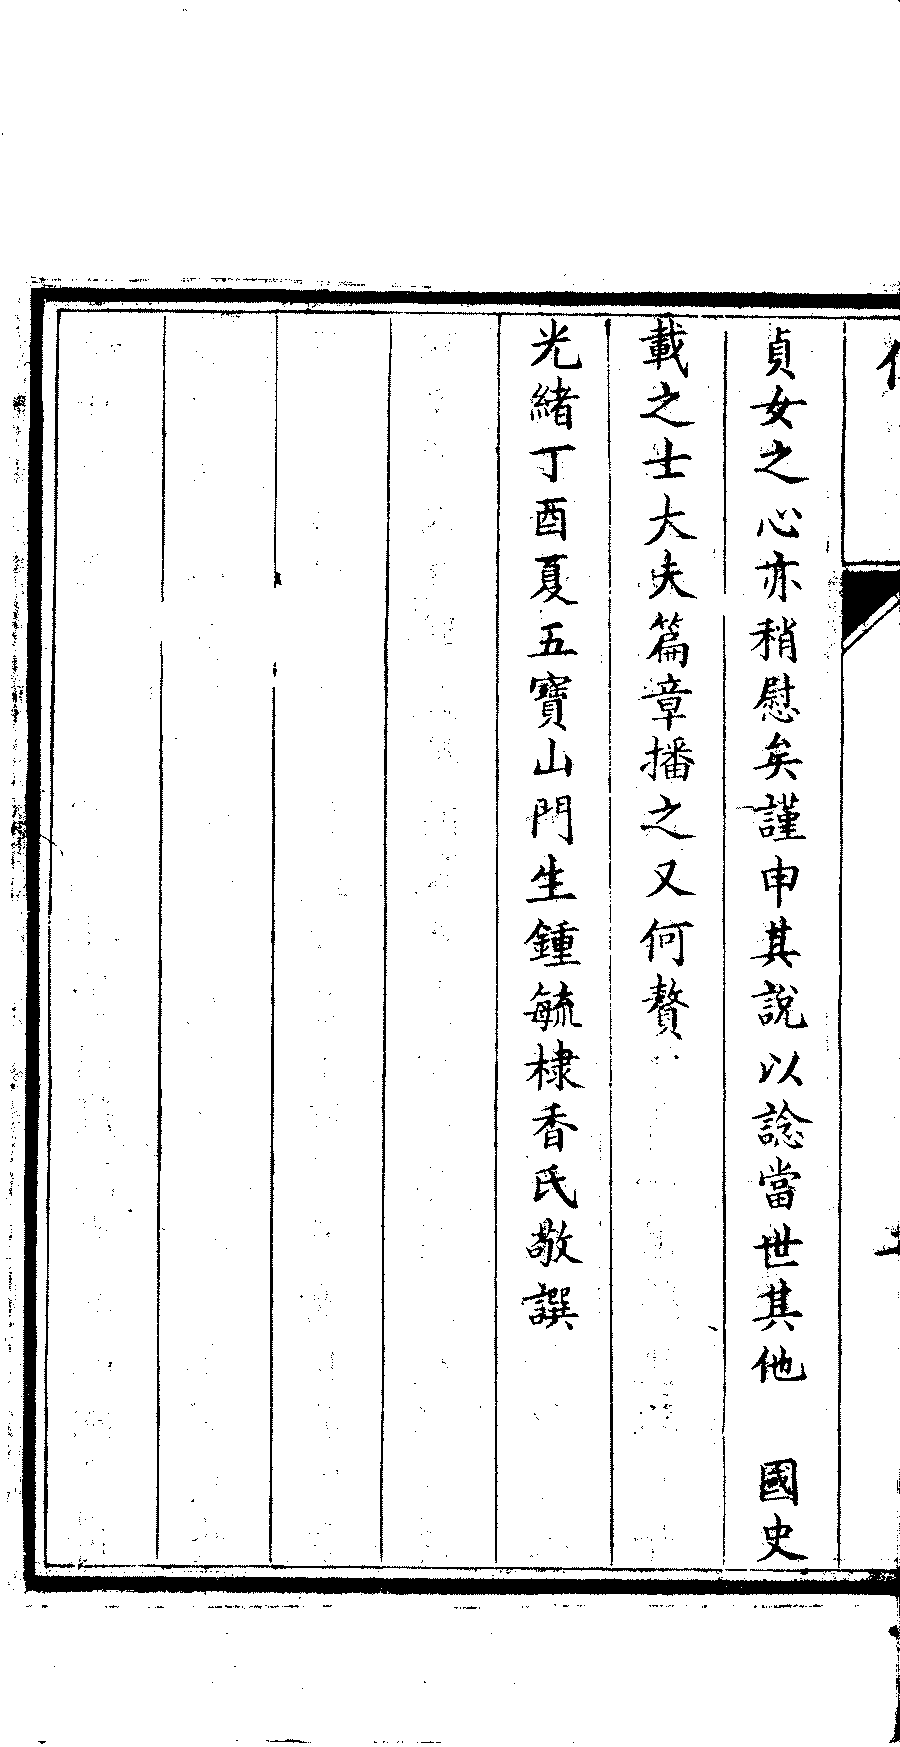 貞女之心亦稍慰矣謹申其說以諗當世其他　國史
載之士大夫篇章播之又何贅
光緒丁酉夏五寶山門生鍾毓棣香氏敬譔